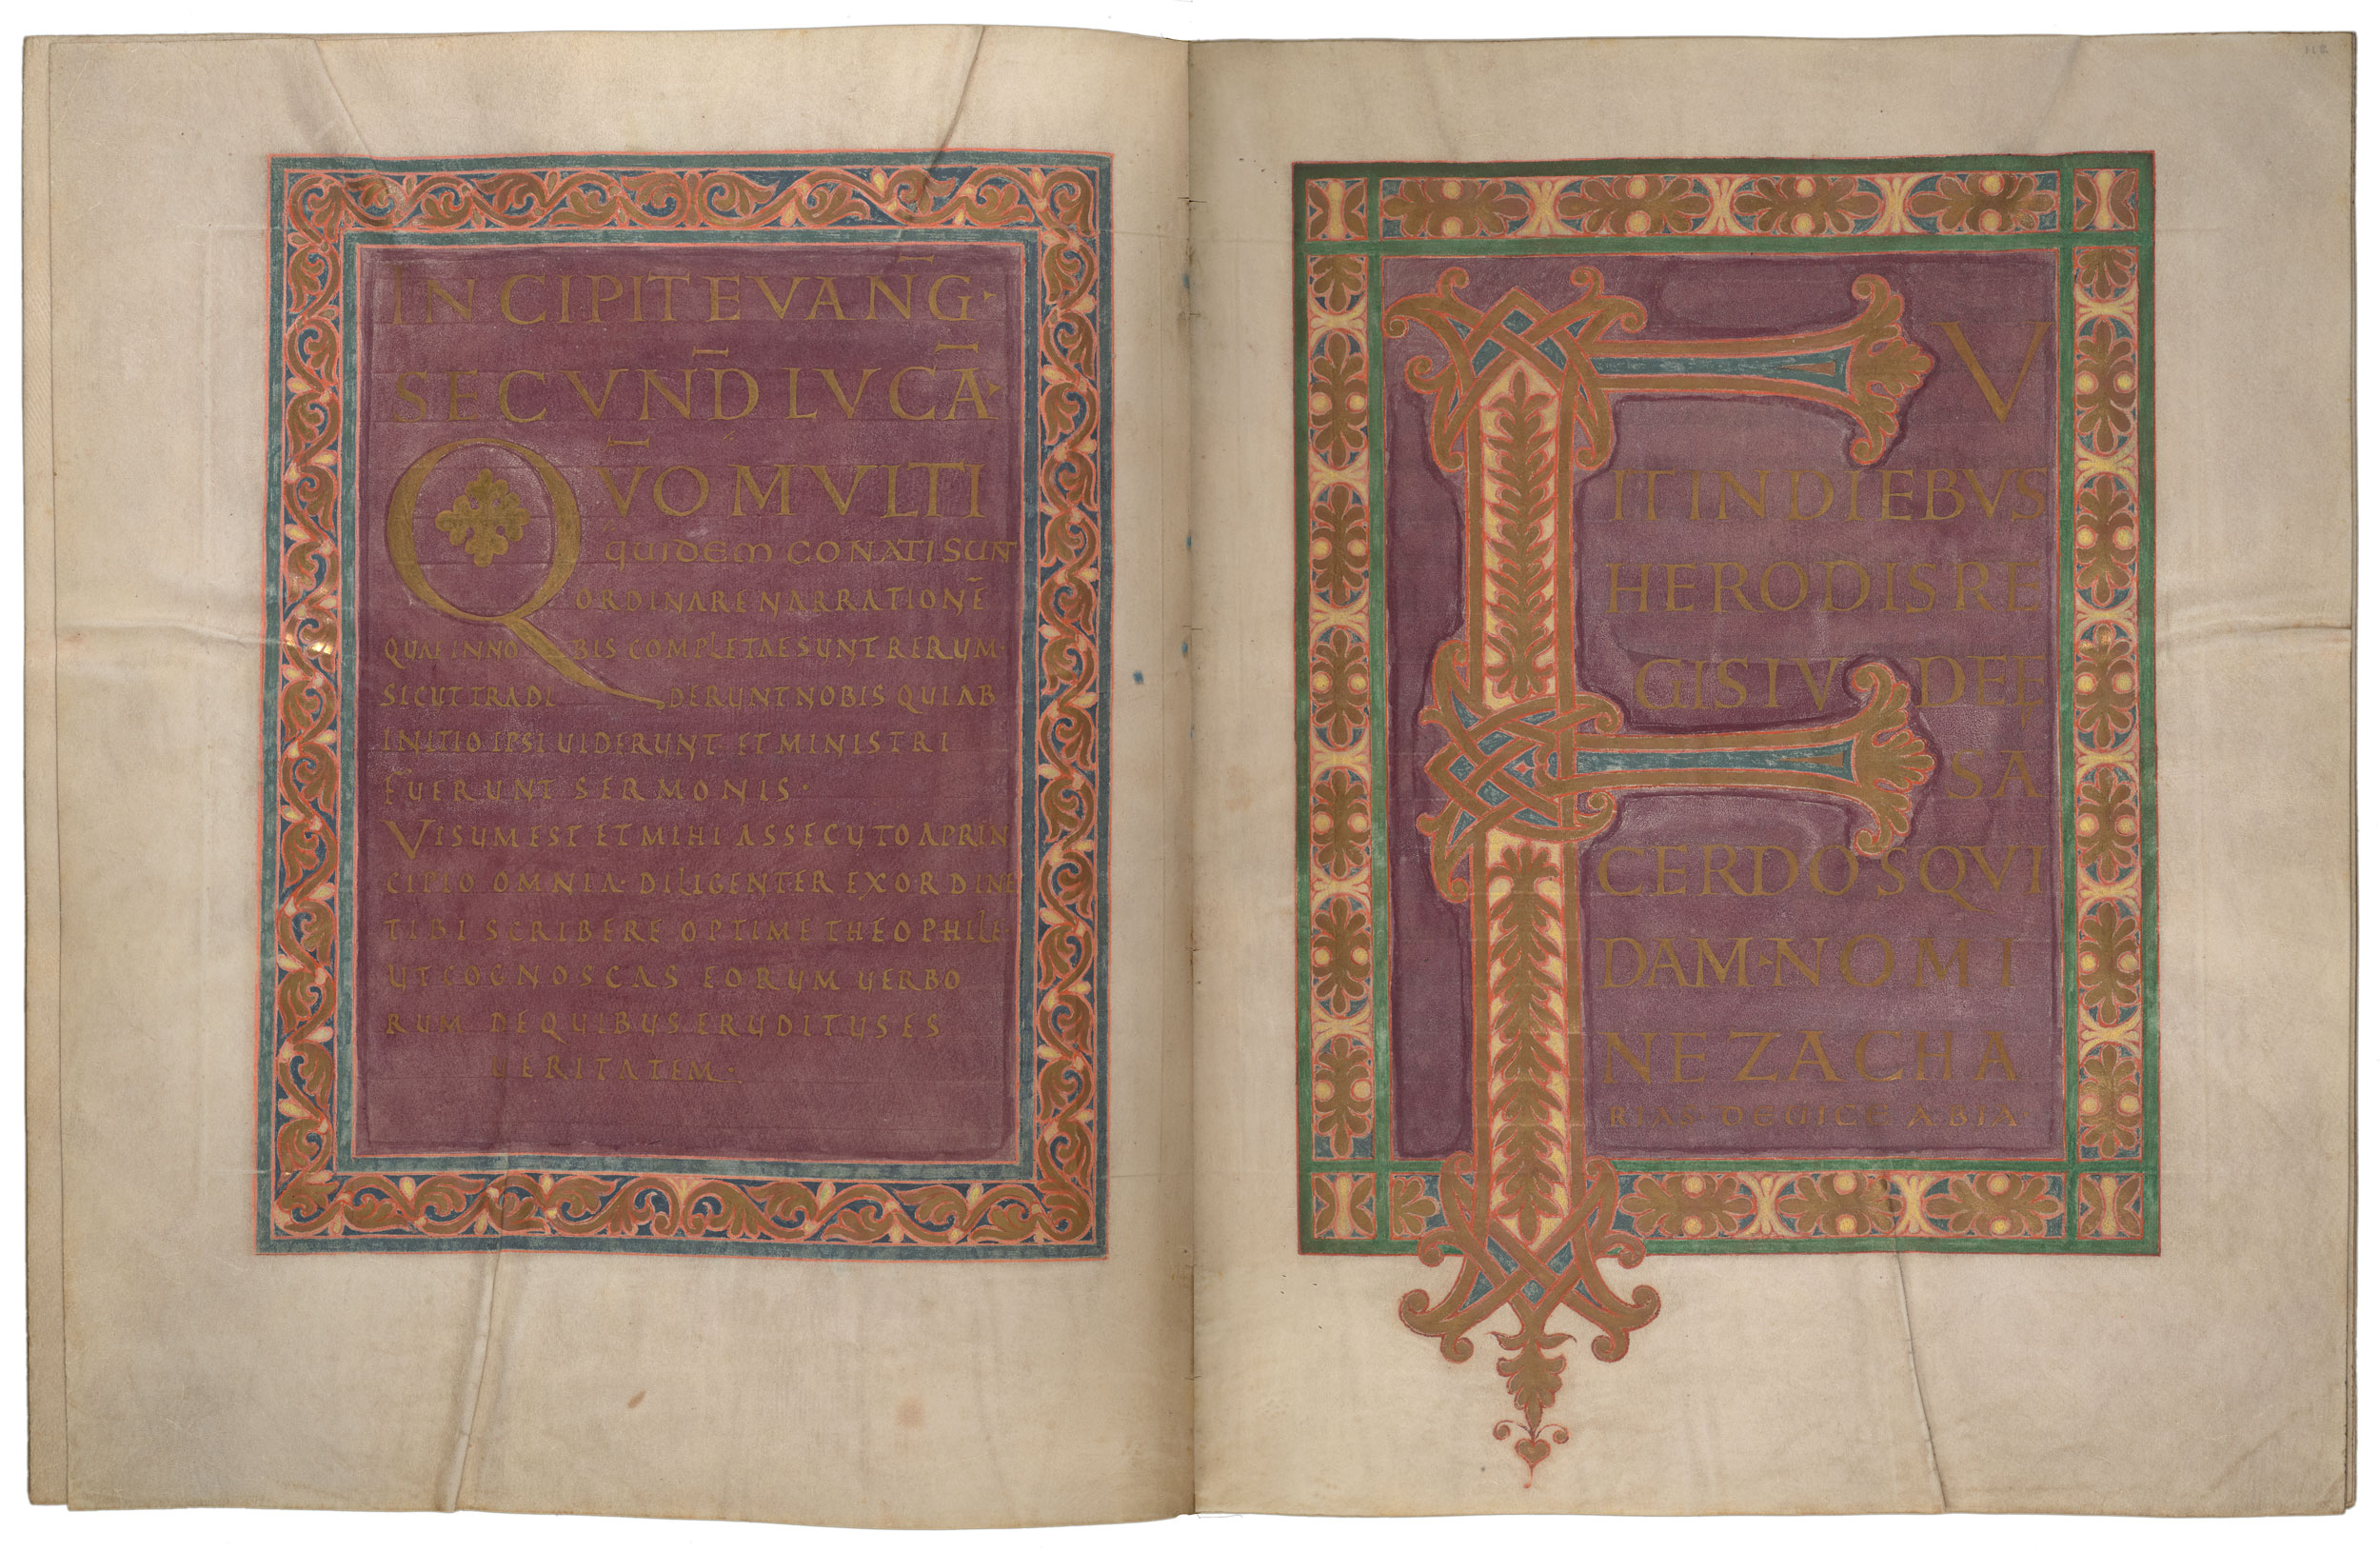 INCIPIT EVANG̅·
SECVND̅ LVCA̅·
QV̅O MVLTI
quidem CONATI SUNT
ORDINARE NARRATIONE̅
QUAE IN NOBIS COMPLETAE SUNT RERUM·
SICUT TRADIDERUNT NOBIS QUI AB
INITIO IPSI UIDERUNT ET MINISTRI
FUERUNT SERMONIS·
VISUM EST ET MIHI ASSECUTO A PRIN
CIPIO OMNIA· DILIGENTER EX ORDINE
TIBI SCRIBERE OPTIME THEOPHILE
UT COGNOSCAS EORUM UERBO
RUM DE QUIBUS ERUDITUS ES
UERITATEM·
112
FV
IT IN DIEBVS
HERODIS RE
GIS IVDEĘ
SA
CERDOS QVI
DAM· NOMI
NE ZACHA
RIAS DE UICE ABIA